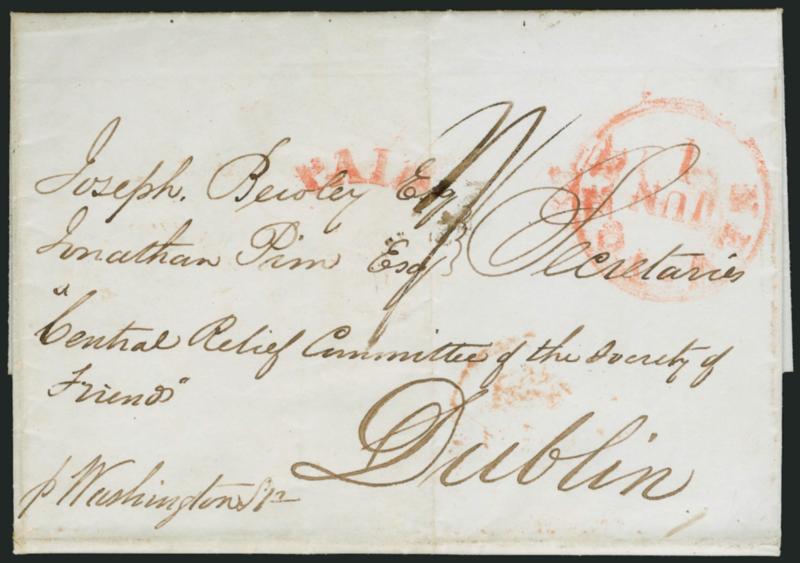 PAID
Joseph. Bewley Esq
Jonathan Pim Esq } Secretaries
"Central Relief Committee of the Society of
Friends"
Dublin
p Washington Str
1
JUN